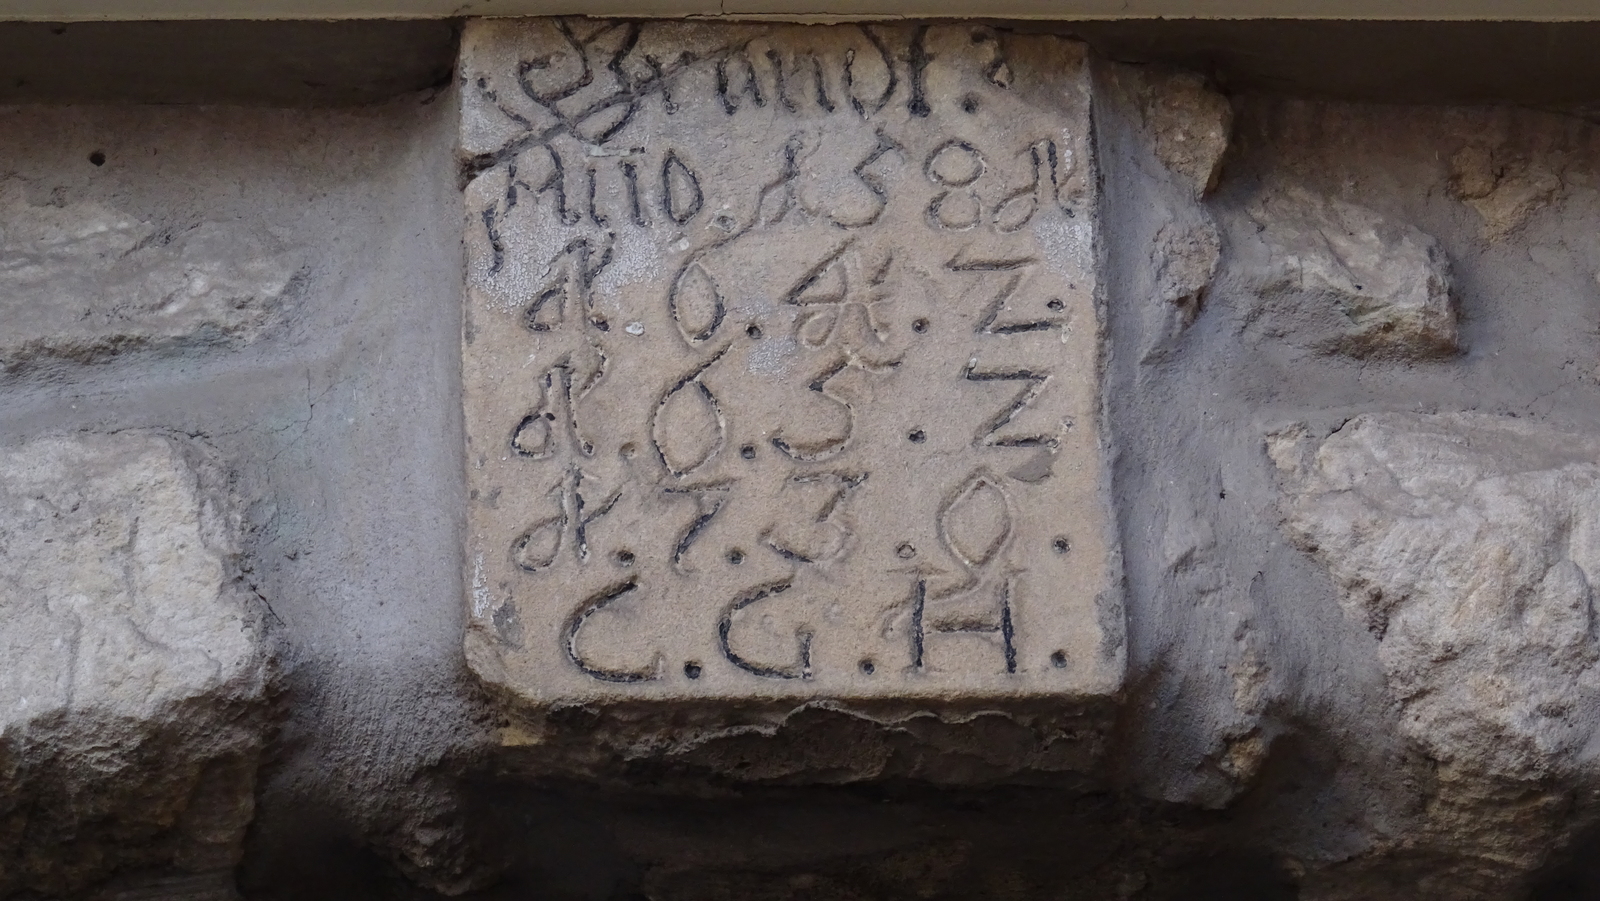 Brandt.
Anno. 1581
1.6.4.2.
1.6.5.2
1.7.3.0.
C.G.H.